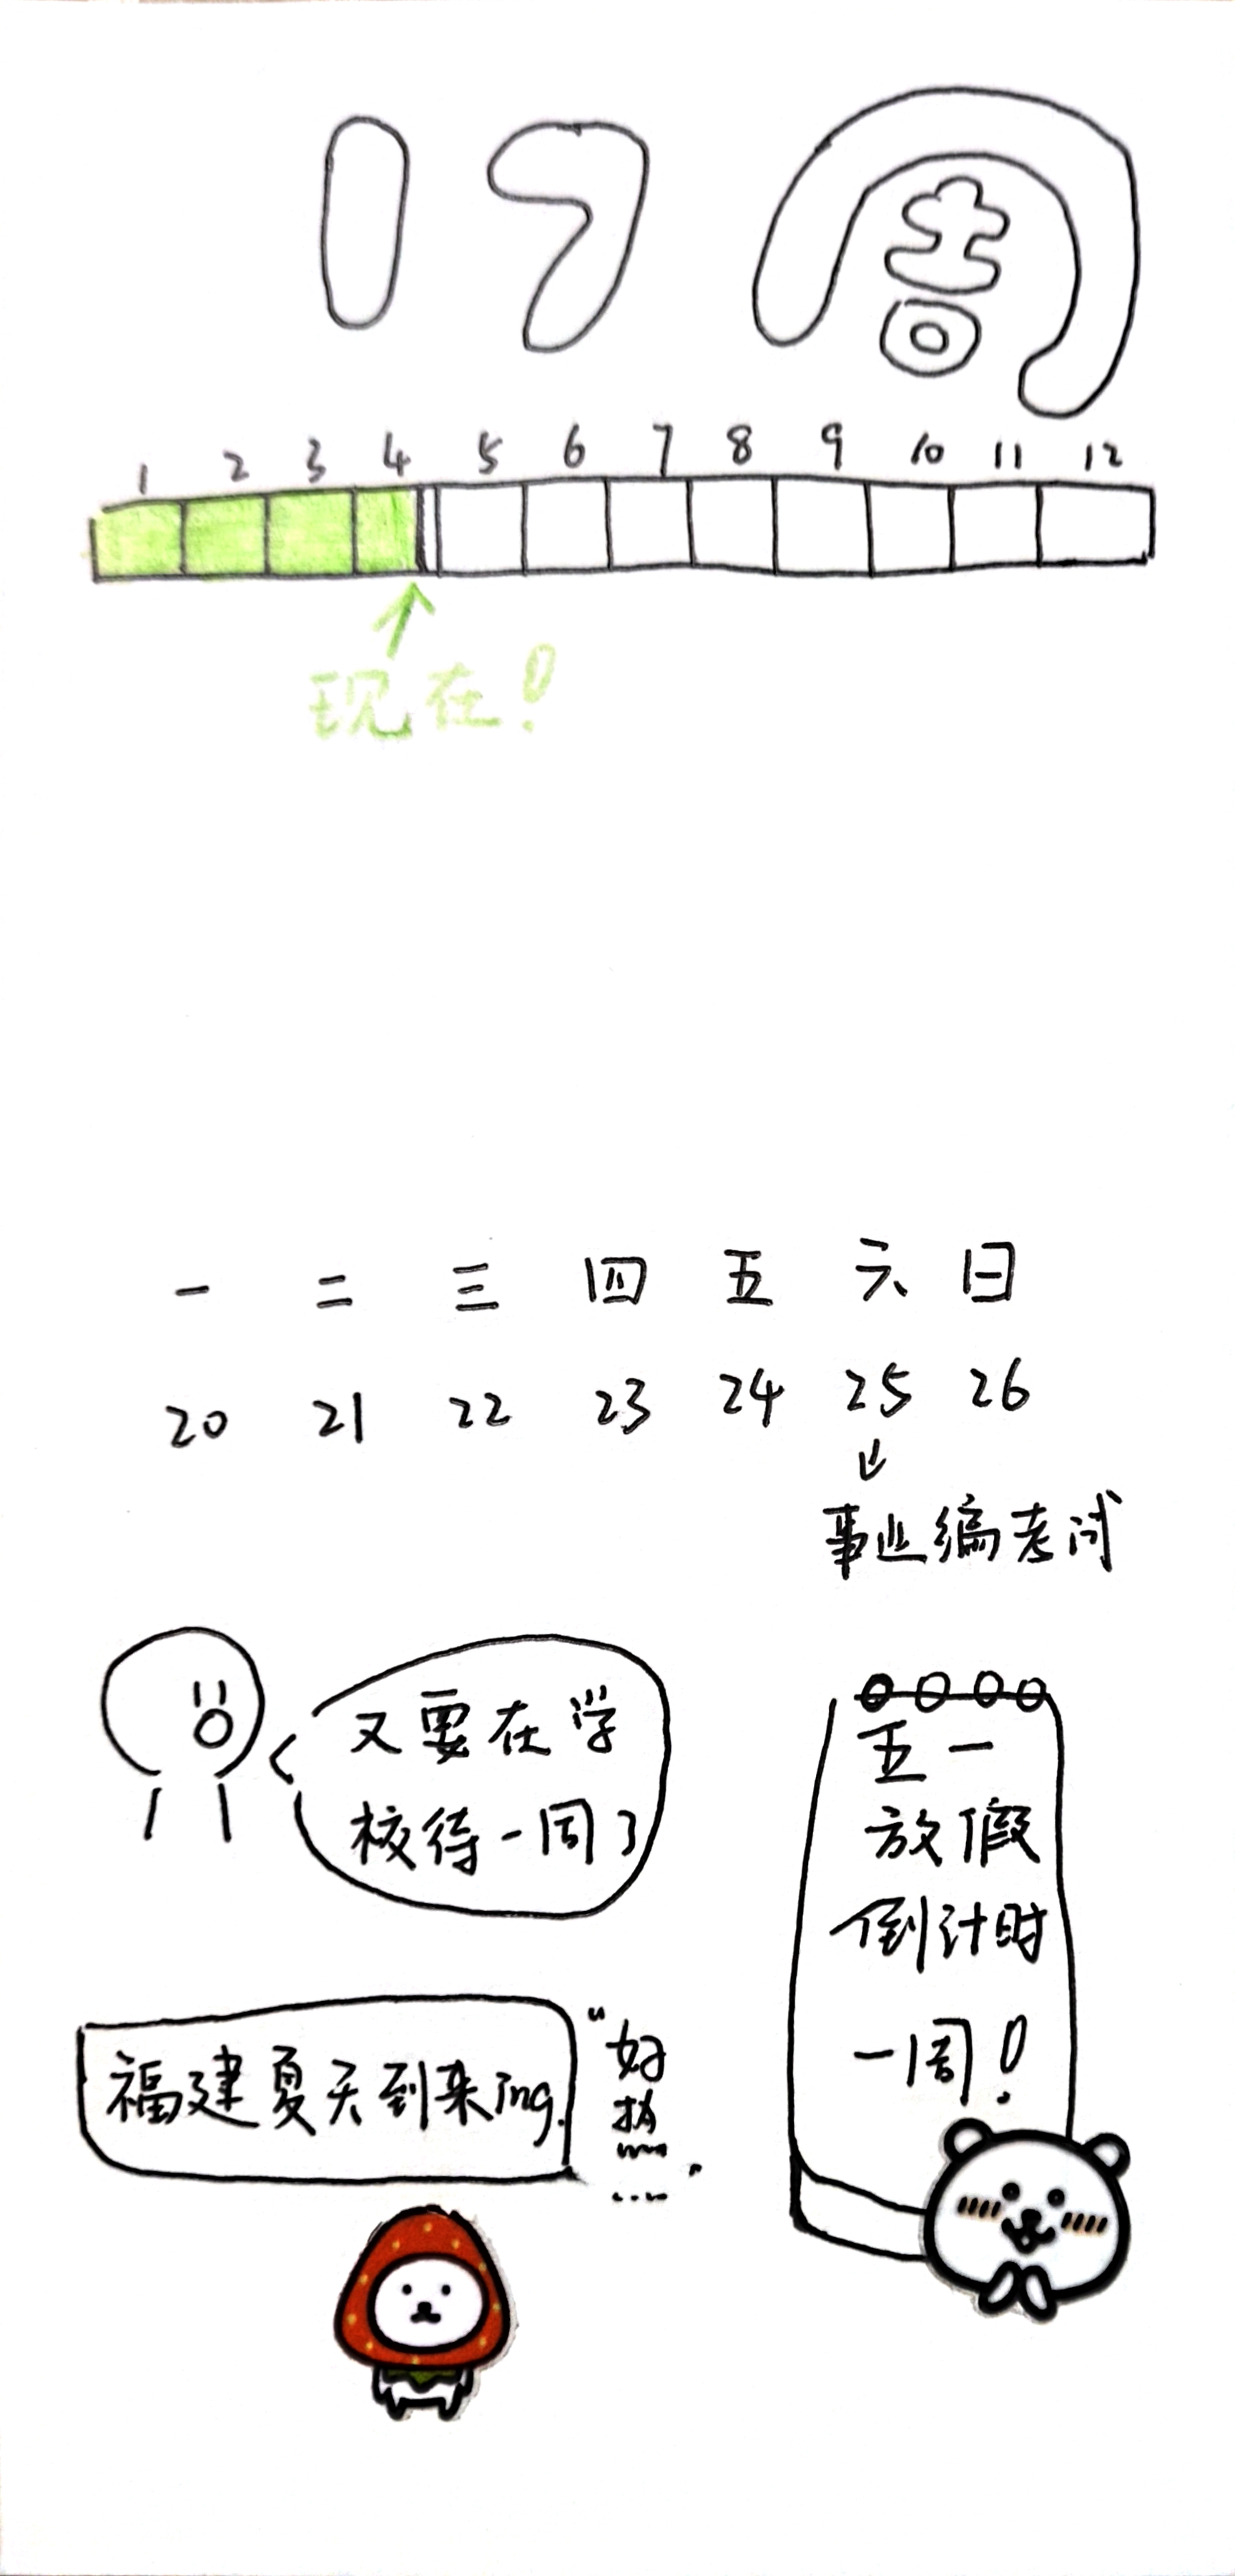 17周
1 2 3 4 5 6 7 8 9 10 11 12
现在!
一 二 三 四 五 六 日
20 21 22 23 24 25 26
事业编考试
又要在学
校待一周了
五一
放假
倒计时
一周!
福建夏天到来ing.
"好
热